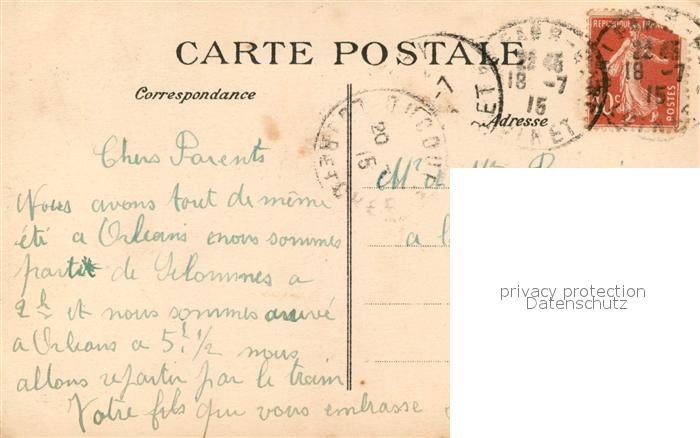 CARTE POSTALE
Correspondance
Adresse
RÉPUBLIQUE
10c
POSTES
18 -7
15
18 -7
15
20
15
Chers Parents
Nous avons tout de même
été a Orleans nous sommes
partit de Selommes a
2h et nous sommes arrivé
a Orleans a 5h 1/2 nous
allons repartir par le train
Votre fils qui vous embrasse
Mr et Mme
a
privacy protection
Datenschutz